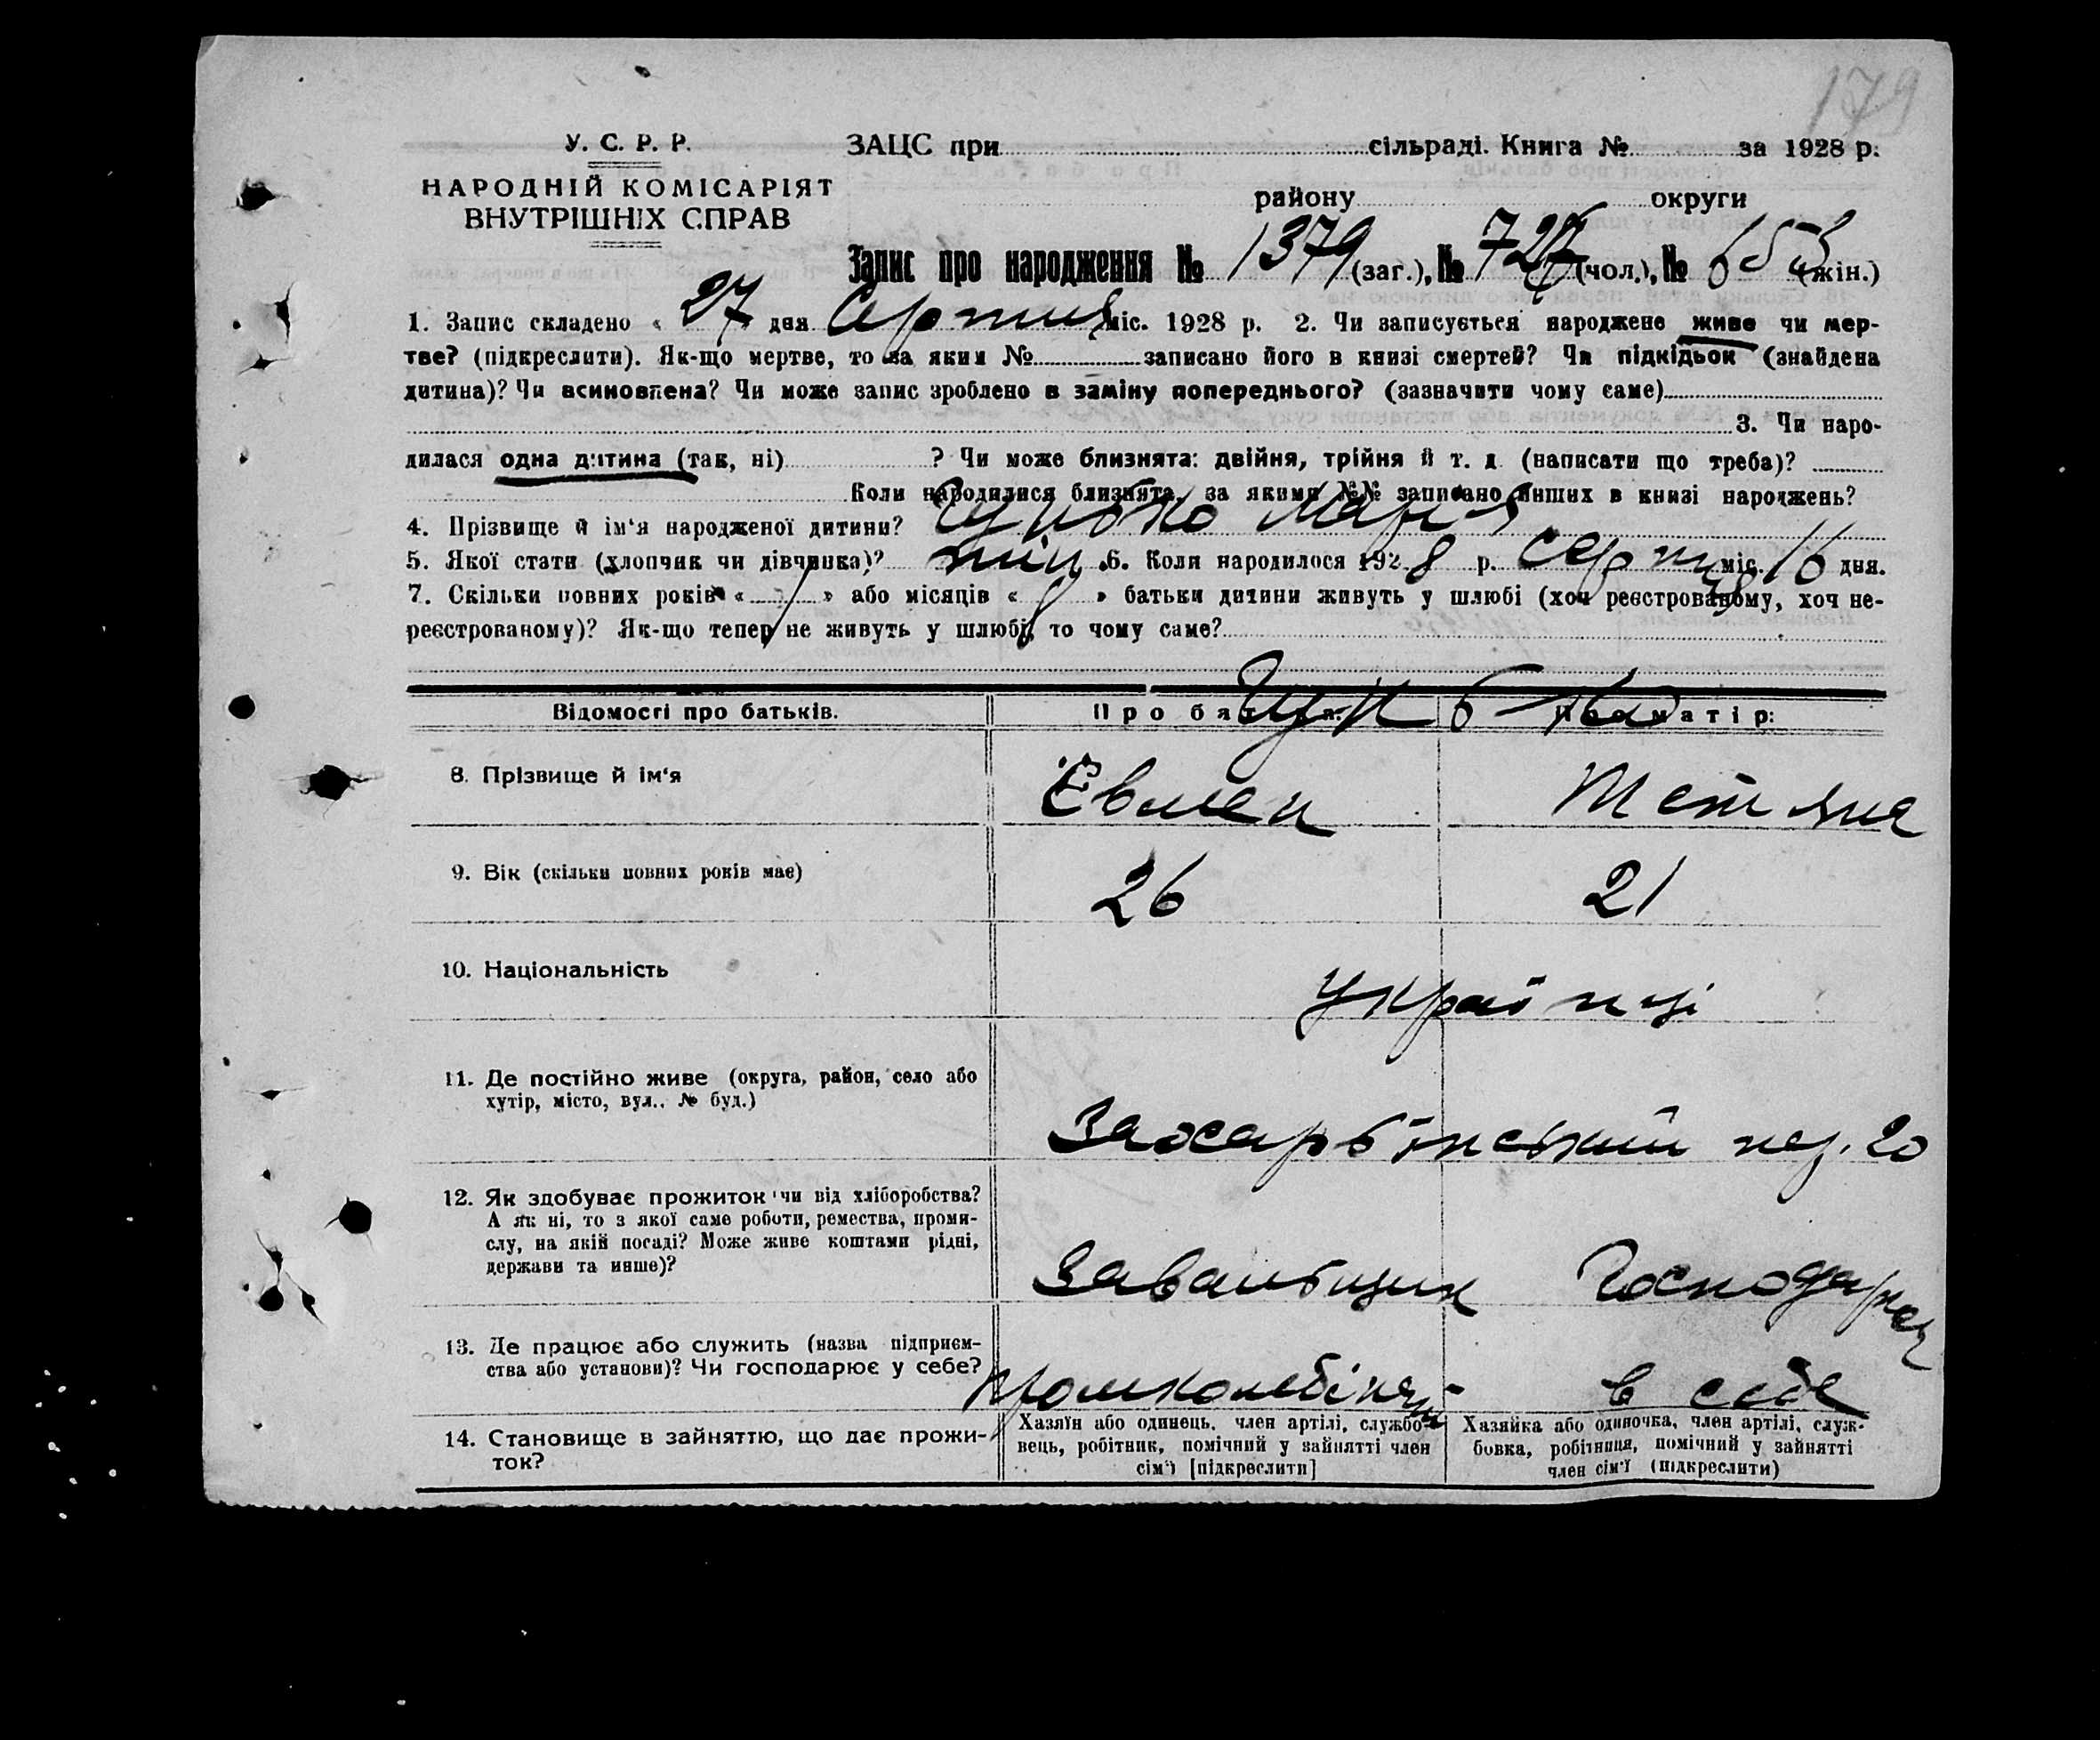 179
У. С. Р. Р.
ЗАЦС при сільраді. Книга № за 1928 р.
НАРОДНІЙ КОМІСАРІЯТ
ВНУТРІШНІХ СПРАВ
району округи
Запис про народження № 1379 (заг.), № 727 (чол.), № 653 (жін.)
1. Запис складено « 27 » дня Серпня міс. 1928 р. 2. Чи записується народжене живе чи мер-
тве? (підкреслити). Як-що мертве, то за яким № записано його в книзі смертей? Чи підкідьок (знайдена
дитина)? Чи всиновлена? Чи може запис зроблено в заміну попереднього? (зазначити чому саме)
3. Чи наро-
дилася одна дитина (так, ні) ? Чи може близнята: двійня, трійня й т. д. (написати що треба)?
Коли народилися близнята, за якими №№ записано инших в книзі народжень?
4. Прізвище й ім'я народженої дитини? Марія
5. Якої стати (хлопчик чи дівчинка)? жін. 6. Коли народилося 1928 р. серпня міс. 16 дня.
7. Скільки повних років « / » або місяців « » батьки дитини живуть у шлюбі (хоч реєстрованому, хоч не-
реєстрованому)? Як-що тепер не живуть у шлюбі, то чому саме?
Відомості про батьків. Про батька: Про матір:
8. Прізвище й ім'я Евмен Тетяна
9. Вік (скільки повних років має) 26 21
10. Національність Українці
11. Де постійно живе (округа, район, село або
хутір, місто, вул., № буд.)
Захарʼївський пер. 20
12. Як здобуває прожиток чи від хліборобства?
А як ні, то з якої саме роботи, ремества, проми-
слу, на якій посаді? Може живе коштами рідні,
держави та инше)?
Завальщик Господарює
13. Де працює або служить (назва підприєм-
ства або установи)? Чи господарює у себе?
Промкомбінат в себе
14. Становище в зайняттю, що дає прожи-
ток?
Хазяїн або одинець, член артілі, службо-
вець, робітник, помічний у зайнятті член
сім'ї [підкреслити]
Хазяйка або одиночка, член артілі, служ-
бовка, робітниця, помічний у зайнятті
член сім'ї (підкреслити)